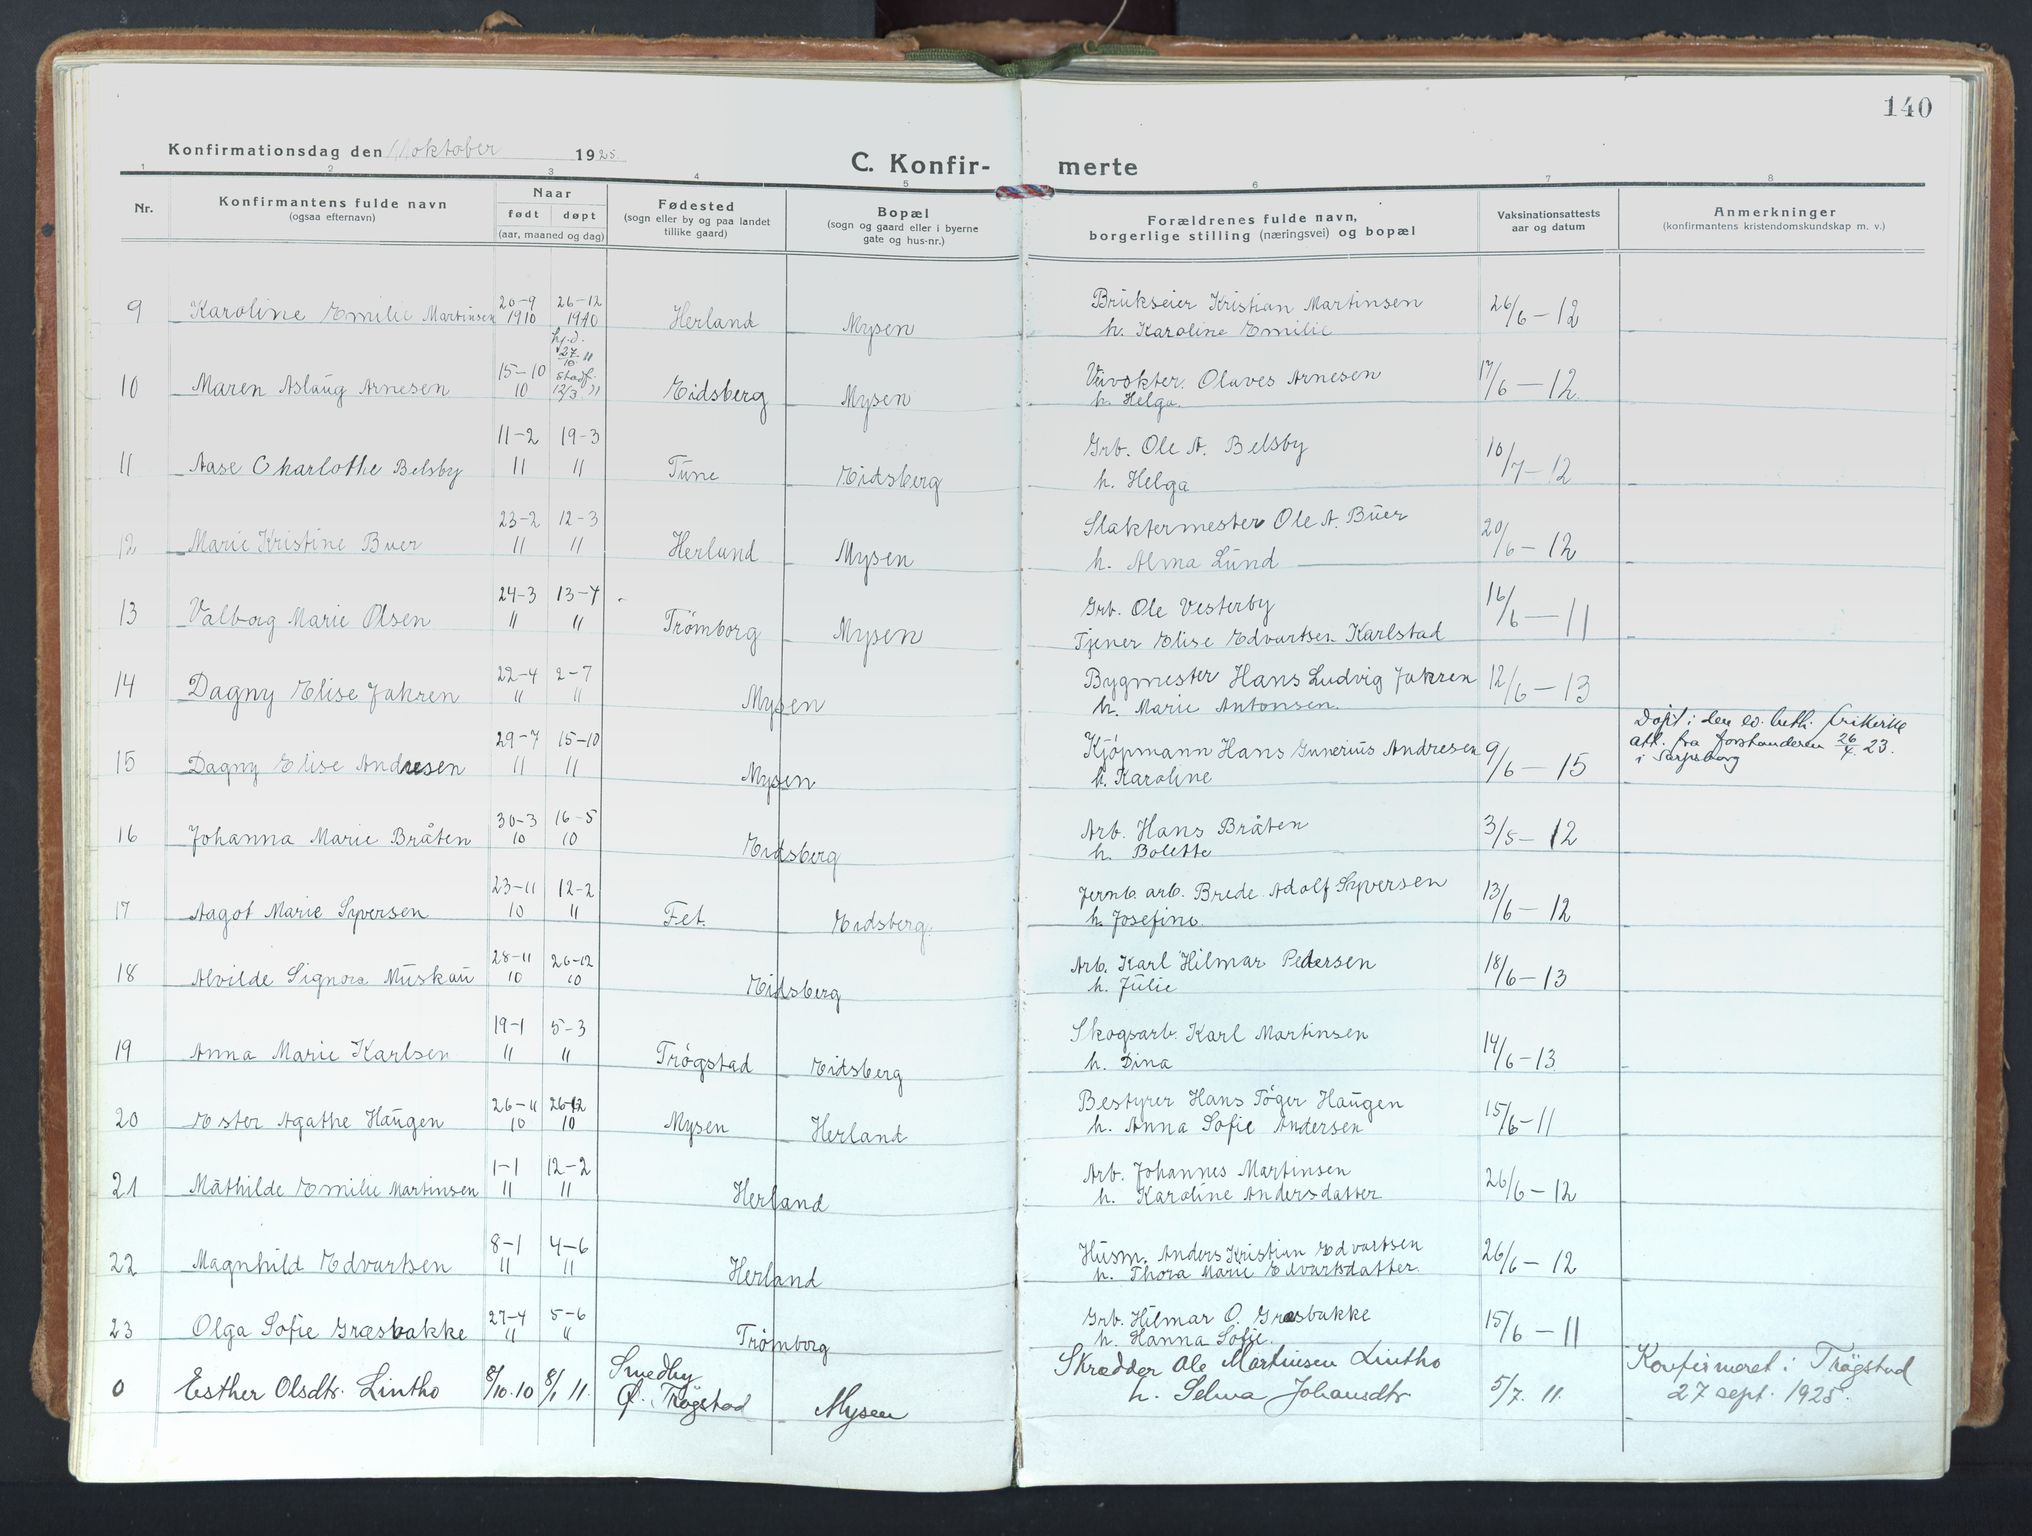 140
Konfirmationsdag den 11 oktober 1925.
C. Konfir- merte
1 2 3 4 5 6 7 8
Nr. Konfirmantens fulde navn (ogsaa efternavn) Naar født døpt (aar, maaned og dag) Fødested (sogn eller by og paa landet tillike gaard) Bopæl (sogn og gaard eller i byerne gate og hus-nr.) Forældrenes fulde navn, borgerlige stilling (næringsvei) og bopæl Vaksinationsattests aar og datum Anmerkninger (konfirmantens kristendomskundskap m. v.)
9 Karoline Emilie Martinsen 20-9 1910 26-12 1910 Herland Mysen Brukseier Kristian Martinsen h. Karoline Emilie 26/6-12
10 Maren Aslaug Arnesen 15-10 10 hj.d. 27/10 " stadf. 12/3 11 Eidsberg Mysen Olaves Arnesen h. Helga. 17/6-12
11 Aase Charlothe Belsby 11-2 11 19-3 11 Tune Eidsberg Grb. Ole A. Belsby h. Helga 10/7-12
12 Marie Kristine Buer 23-2 11 12-3 11 Herland Mysen Slaktermester Ole A. Buer h. Alma Lund 20/6-12
13 Valborg Marie Olsen 24-3 11 13-4 11 Trømborg Mysen Grb. Ole Vesterby Tjener Elise Edvartsen Karlstad 16/6-11
14 Dagny Elise Jahren 22-4 11 2-7 11 Mysen Bygmester Hans Ludvig Jahren h. Marie Antonsen. 12/6-13
15 Dagny Elise Andresen 29-7 11 15-10 11 Mysen Kjøpmann Hans Gunerius Andresen h. Karoline 9/6-15 Døpt i den ev. luth. frikirke att. fra forstanderen 26/4 23. i Sarpsborg
16 Johanna Marie Bråten 30-3 10 16-5 10 Eidsberg Arb. Hans Bråten h. Bolette 3/5-12
17 Aagot Marie Syversen 23-11 10 12-2 11 Fet. Eidsberg. Jernb. arb. Brede Adolf Syversen h. Josefine. 13/6-12
18 Alvilde Signora Muskau 28-11 10 26-12 10 Eidsberg Arb. Karl Hilmar Pedersen h. Julie 18/6-13
19 Anna Marie Karlsen 19-1 11 5-3 11 Trøgstad Eidsberg Skogsarb. Karl Martinsen h. Dina 14/6-13
20 Ester Agathe Haugen 26-11 10 26-12 10 Mysen Herland Bestyrer Hans Tøger Haugen h. Anna Sofie Andersen 15/6-11
21 Mathilde Emilie Martinsen 1-1 11 12-2 11 Herland Arb. Johannes Martinsen h. Karoline Andersdatter 26/6-12
22 Magnhild Edvartsen 8-1 11 4-6 11 Herland Husm. Anders Kristian Edvartsen h. Thora Marie Edvartsdatter. 26/6-12
23 Olga Sofie Græsbakke 27-4 11 5-6 11 Trømborg Grb. Hilmar O. Græsbakke h. Hanna Sofie. 15/6-11
0 Esther Olsdtr. Lintho 8/10.10 8/1 11. Smedby Ø. Trøgstad Mysen Skrædder Ole Martinsen Lintho h. Selma Johansdtr 5/7. 11. Konfirmeret i Trøgstad 27 sept. 1925.